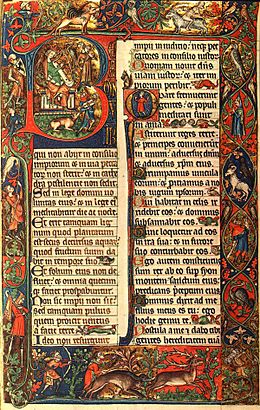 qui non abijt in consilio
impiorum et in via pecca
torum non stetit: et in cathe
dra pestilencie non sedit.
Sed in lege domini uo
luntas eius: et in lege ei
meditabitur die ac nocte.
Et erit tanquam lig
num quod plantatum
est secus decursus aquar
quod fructum suum da
bit in tempore suo
Et folium eius non de
fluet: et omnia quecum
faciet prosperabuntur.
Non sic impii non sic:
sed tamquam puluis
quem proicit ventus
a facie terre
Ideo non resurgunt
impii in iudicio: neque pec
catores in consilio iustor
Quoniam nouit dns
uiam iustor: et iter im
piorum peribit
gentes: et populi
meditati sunt
inania
Astiterunt reges terre
et principes conuenerunt
in unum: aduersus dnm
et aduersus xpm eius.
Dirumpamus uincula
eorum: et
iugum ipsorum
Qui habitat in celis irri
debit eos: et dominus
subsannabit eos.
Tunc loquetur ad eos
in ira sua: et in furore
suo conturbabit eos
Ego autem constitutus
sum rex ab eo sup syon
montem sanctum eius:
predicans preceptum eius
Dominus dixit ad me
filius meus es tu: ego
hodie genui te
Postula a me et dabo tibi
gentes hereditatem